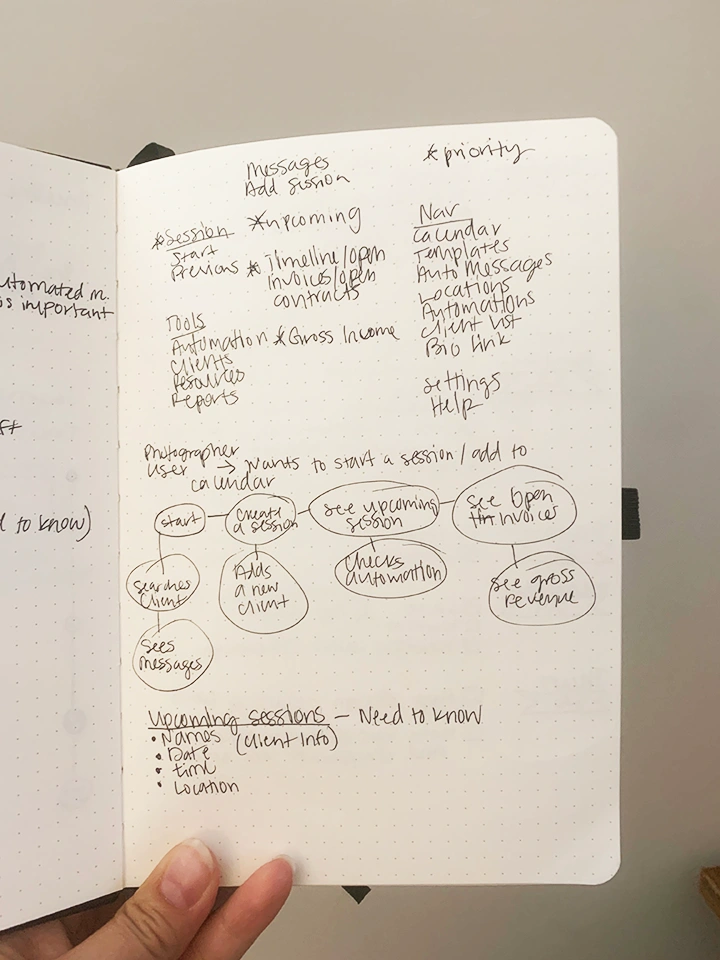 utomated m.
is important
ft
d to know)
Messages
Add Session
*priority
*Session
Start
Previous
*upcoming
* Timeline/open
invoices/open
contracts
Tools
Automation
Clients
Resources
Reports
*Gross Income
Nav
Calendar
Templates
Auto Messages
Locations
Automations
Client list
Bio link
Settings
Help
Photographer
User → Wants to start a session / add to
calendar
start
Create
a session
See upcoming
session
See Open
invoices
Searches
Client
Adds
a new
client
Checks
automation
See gross
revenue
Sees
messages
Upcoming sessions — Need to know
• Names (Client Info)
• Date
• time
• Location